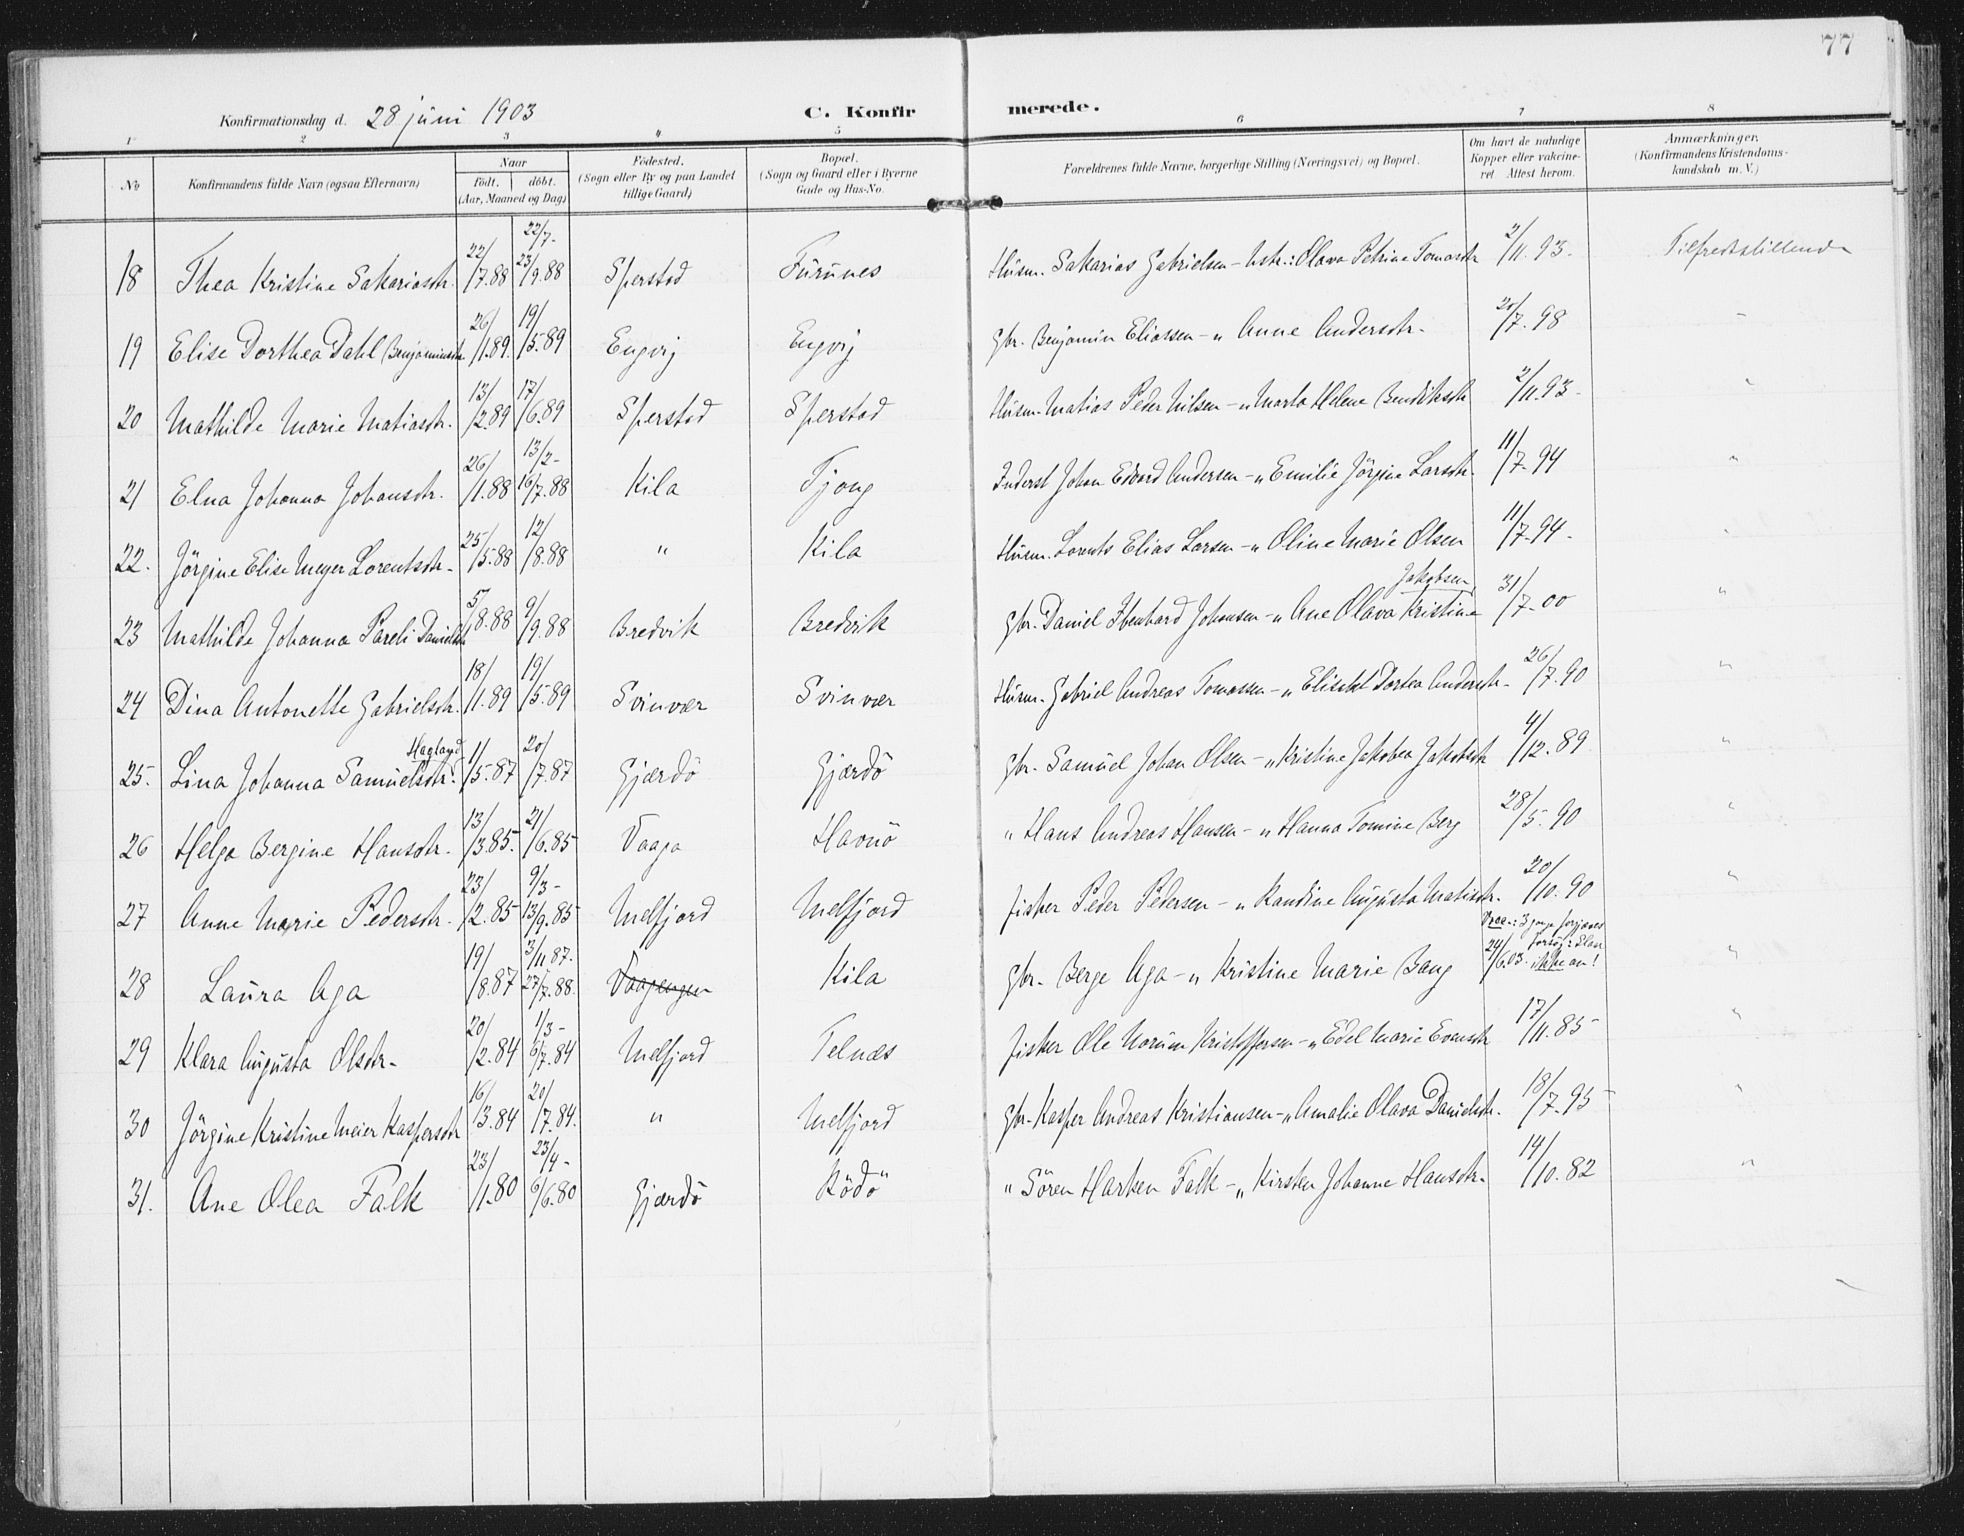 77
Konfirmationsdag d. 28 juni 1903 C. Konfirmerede.
1 2 3 4 5 6 7 8
No Konfirmandens fulde Navn (ogsaa Efternavn) Naar Födt. döbt. (Aar, Maaned og Dag) Födested. (Sogn eller By og paa Landet tillige Gaard) Bopæl. (Sogn og Gaard eller i Byerne Gade og Hus-No. Forældrenes fulde Navne, borgerlige Stilling (Næringsvei) og Bopæl. Om havt de naturlige Kopper eller vakcineret Attest herom. Anmærkninger. (Konfirmandens Kristendomskundskab m. V.)
18 Thea Kristine Sakariasdtr. 22/7.88 22/7- 23/9.88 Sperstad Furunes Husm. Sakarias Gabrielsen - hstr.: Olava Petrine Tomasdtr 2/11.93. Tilfredsstillende
19 Elise Dorthea Dahl Benjaminsdtr 26/1.89. 19/5.89 Engvij Engvij Gbr. Benjamin Eliassen - " Anne Andersdtr. 20/7.98 "
20 Mathilde Marie Matiasdtr. 13/2.89 17/6.89 Sperstad Sperstad Husm. Matias Peder Nilsen - " Marta Helene Bendiksdtr 2/11.93. "
21 Elna Johanna Johansdtr. 26/1.88 13/2- 16/7.88 Kila Tjong Inderst Johan Edvard Andersen - " Emilie Jörgine Larsdtr. 11/7.94 "
22. Jörgine Elise Meyer Lorentsdtr. 25/5.88 12/8.88 " Kila Husm. Lorents Elias Larsen - " Oline Marie Olsen 11/7.94. "
23 Mathilde Johanna Pareli Danielsdtr 5/8.88 9/9.88 Bredvik Bredvik Gbr. Daniel Ebenhard Johansen - " Ane Olava Kristine Jakobsen 31/7.00 "
24 Dina Antonette Gabrielsdtr. 18/1.89 19/5.89 Svinvær Svinvær Husm. Gabriel Andreas Tomassen - " Elisabet Dortea Andersdtr. 26/7.90 "
25. Lina Johanna Samuelsdtr. Hagland 1/5.87 20/7.87 Gjærdö Gjærdö Gbr. Samuel Johan Olsen - " Kristine Jakobea Jakobsdtr 4/12.89 "
26 Helga Bergine Hansdtr. 13/3.85. 21/6.85 Vaaga Havnö " Hans Andreas Hansen - " Hanna Tomine Berg 28/5.90 "
27 Anne Marie Pedersdtr. 23/2.85 9/3- 13/9.85 Melfjord Melfjord Fisker Peder Pedersen - " Randine Augusta Matisdtr. 20/10.90 "
28 Laura Aga 19/8.87 3/11 87. 27/7.88. Vaagengen Kila Gbr. Berge Aga - " Kristine Marie Bang Vacc.: 3 gange forgjæves forsög: Slaar ikke an! 24/6.03. "
29 Klara Augusta Olsdtr. 20/2.84 1/3- 6/7.84 Melfjord Telnes Fisker Ole Norum Kristoffersen - " Edel Marie Evensdtr 17/11.85 "
30 Jörgine Kristine Meier Kaspersdtr 16/3.84 20/7.84. " Melfjord Gbr. Kasper Andreas Kristiansen - " Amalie Olava Danielsdtr. 18/7.95 "
31. Ane Olea Falk 23/1.80 23/4- 6/6.80 Gjærdö Rödö " Sören Harken Falk - " Kirsten Johanne Hansdtr. 14/10.82 "